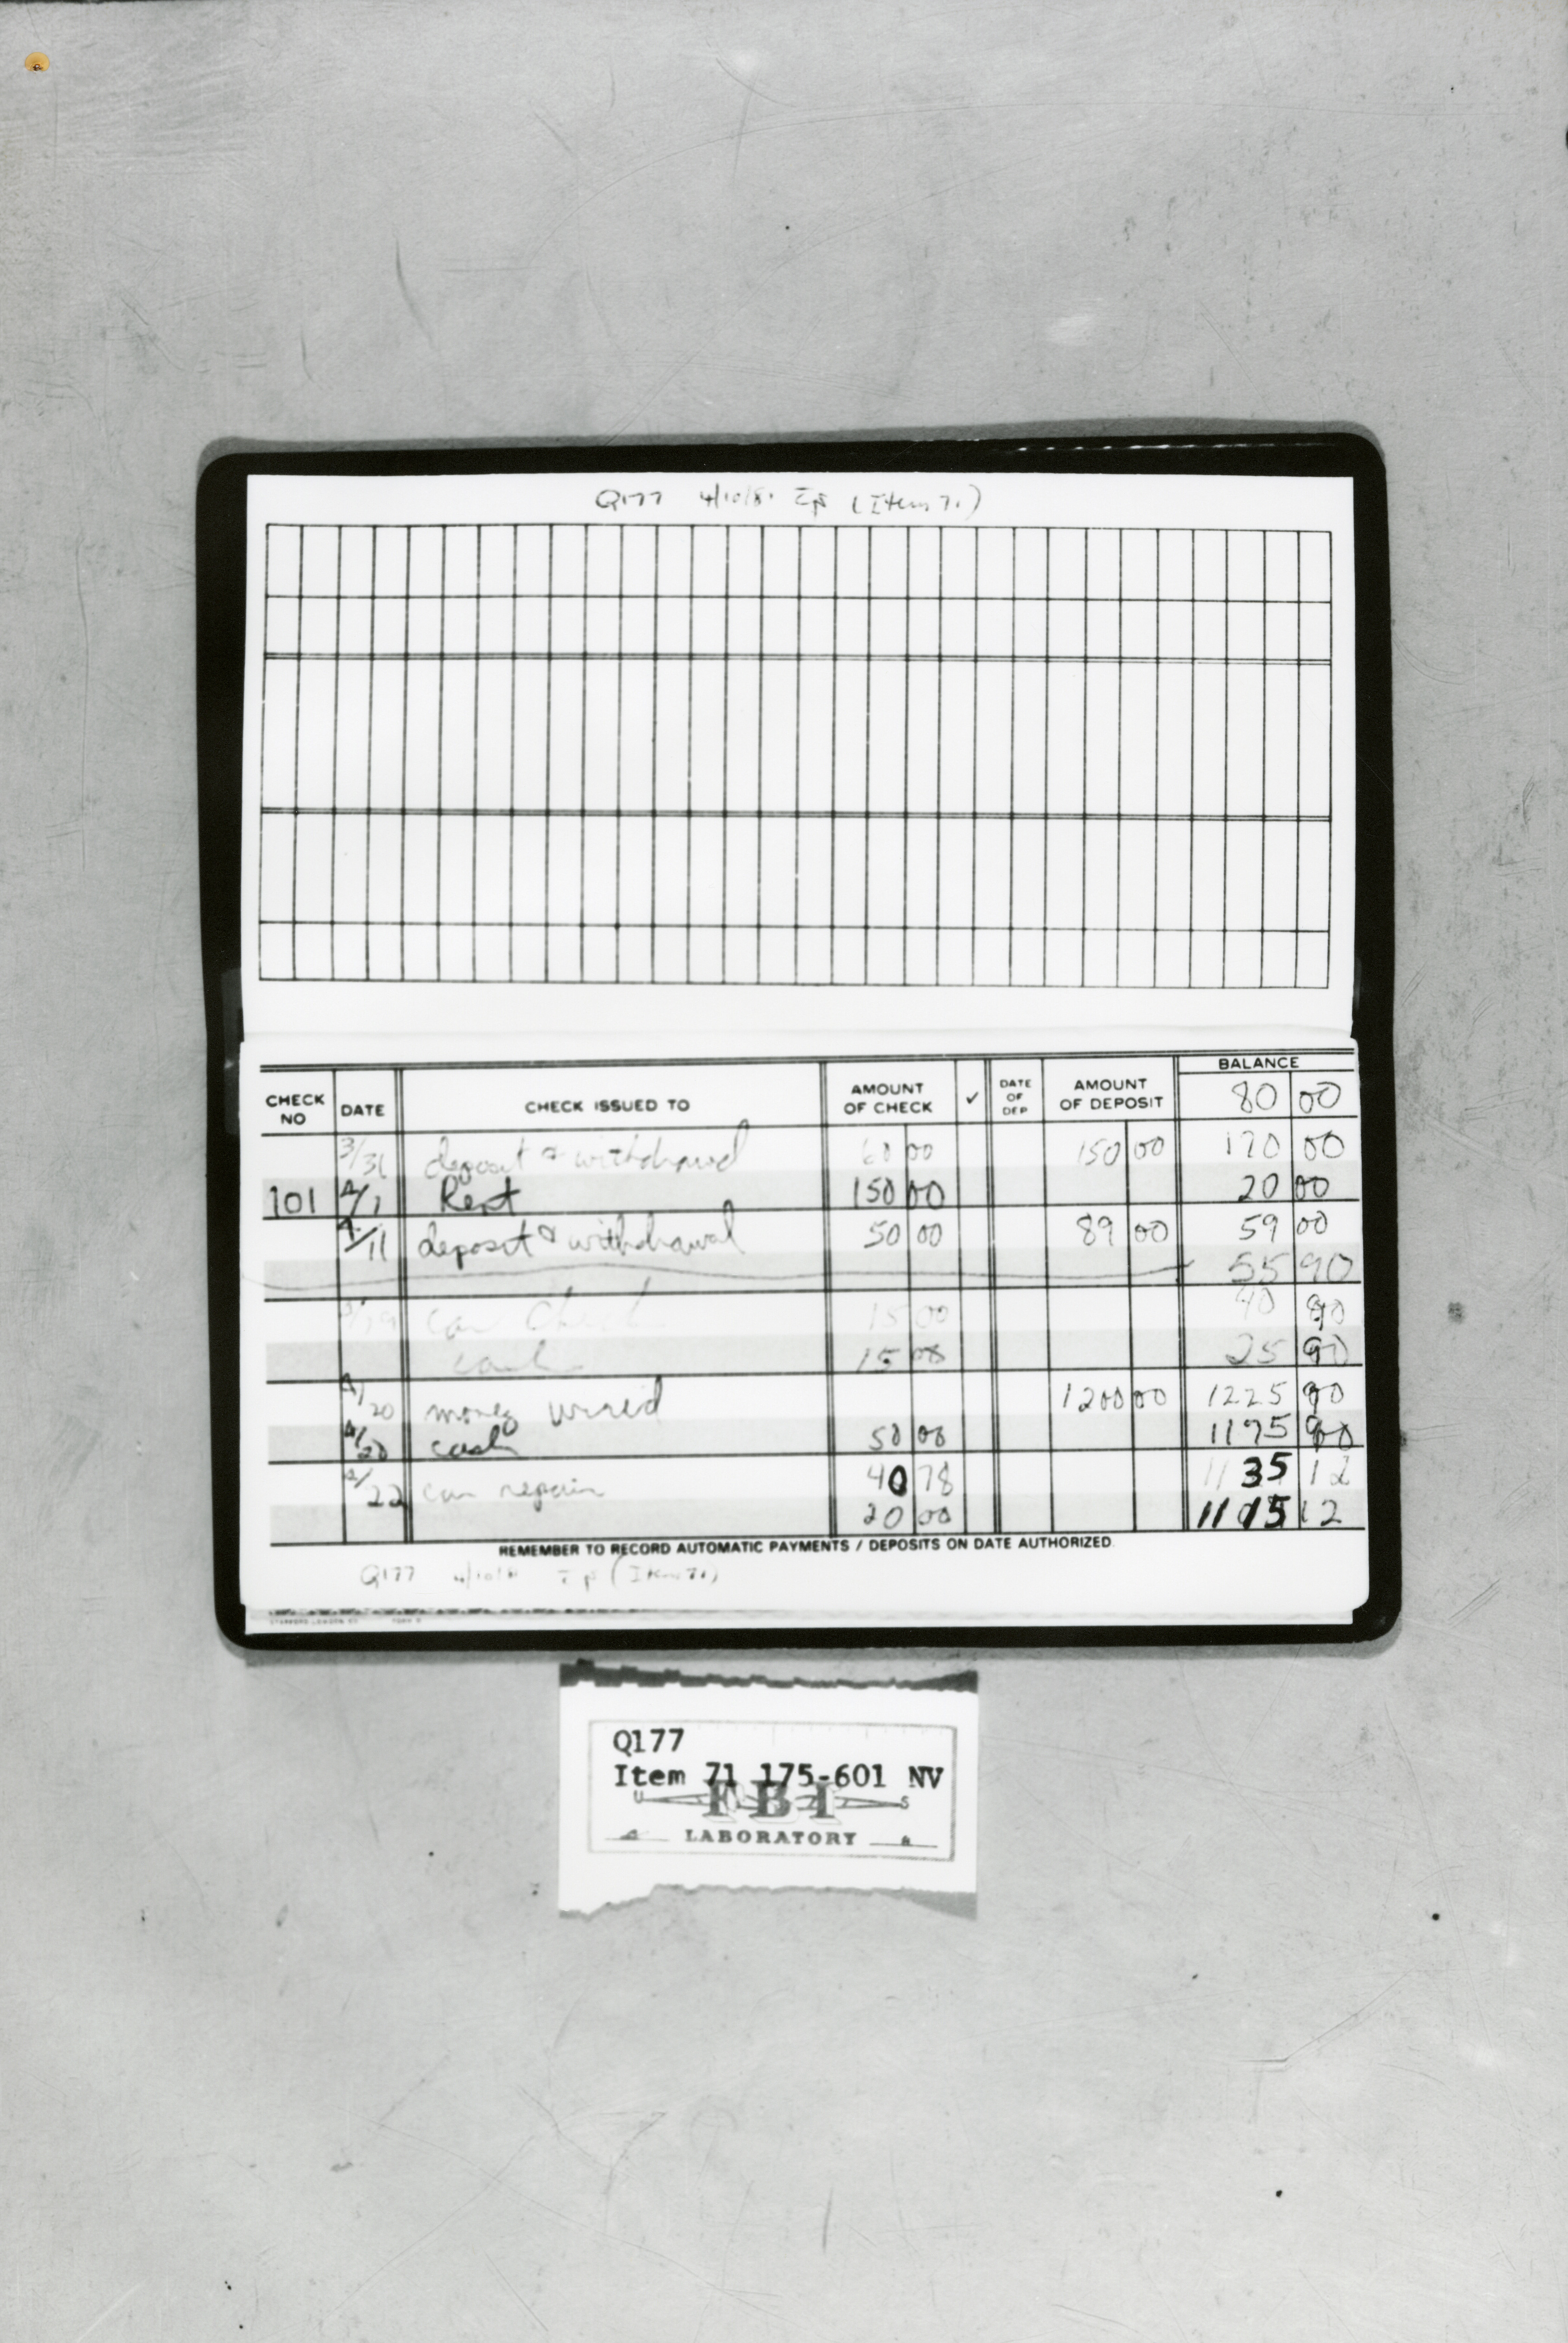 Q177 4/10/81 (Item 71)
BALANCE
CHECK NO DATE CHECK ISSUED TO AMOUNT OF CHECK ✓ DATE OF DEP AMOUNT OF DEPOSIT 80 00
3/31 deposit & withdrawal 60 00 150 00 170 00
101 4/1 Rent 150 00 20 00
4/11 deposit & withdrawal 50 00 89 00 59 00
55 90
15 00 40 90
cash 15 00 25 90
4/20 money wired 1200 00 1225 90
4/20 cash 50 00 1175 90
4/22 car repair 40 78 1135 12
20 00 1115 12
REMEMBER TO RECORD AUTOMATIC PAYMENTS / DEPOSITS ON DATE AUTHORIZED.
Q177 4/10/81 (Item 71)
Q177
Item 71 175-601 NV
FBI
LABORATORY